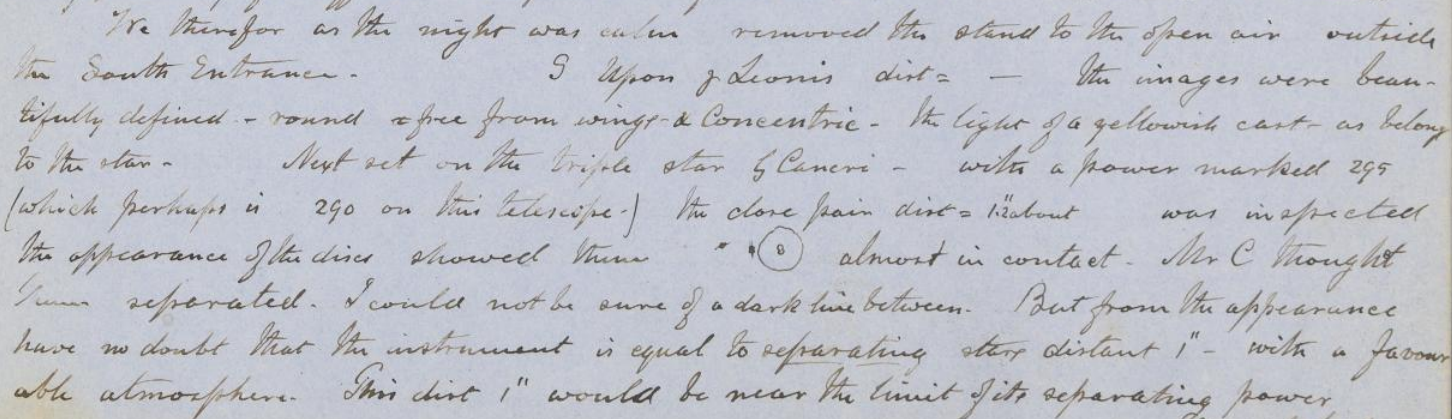 We therefor as the night was calm removed the stand to the open air outside
the South Entrance - Upon γ Leonis dist = - the images were beau-
tifully defined - round & free from wings & Concentric - the light of a yellowish cast - as belong
to the star - Next set on the triple star ζ Cancri - with a power marked 295
(which perhaps is 290 on this telescope -) the close pair dist = 1.2" about was inspected
the appearance of the discs showed them almost in contact - Mr C thought
separated. I could not be sure of a dark line between. But from the appearance
have no doubt that the instrument is equal to separating stars distant 1" - with a favour
able atmosphere. This dist 1" would be near the limit of its separating power